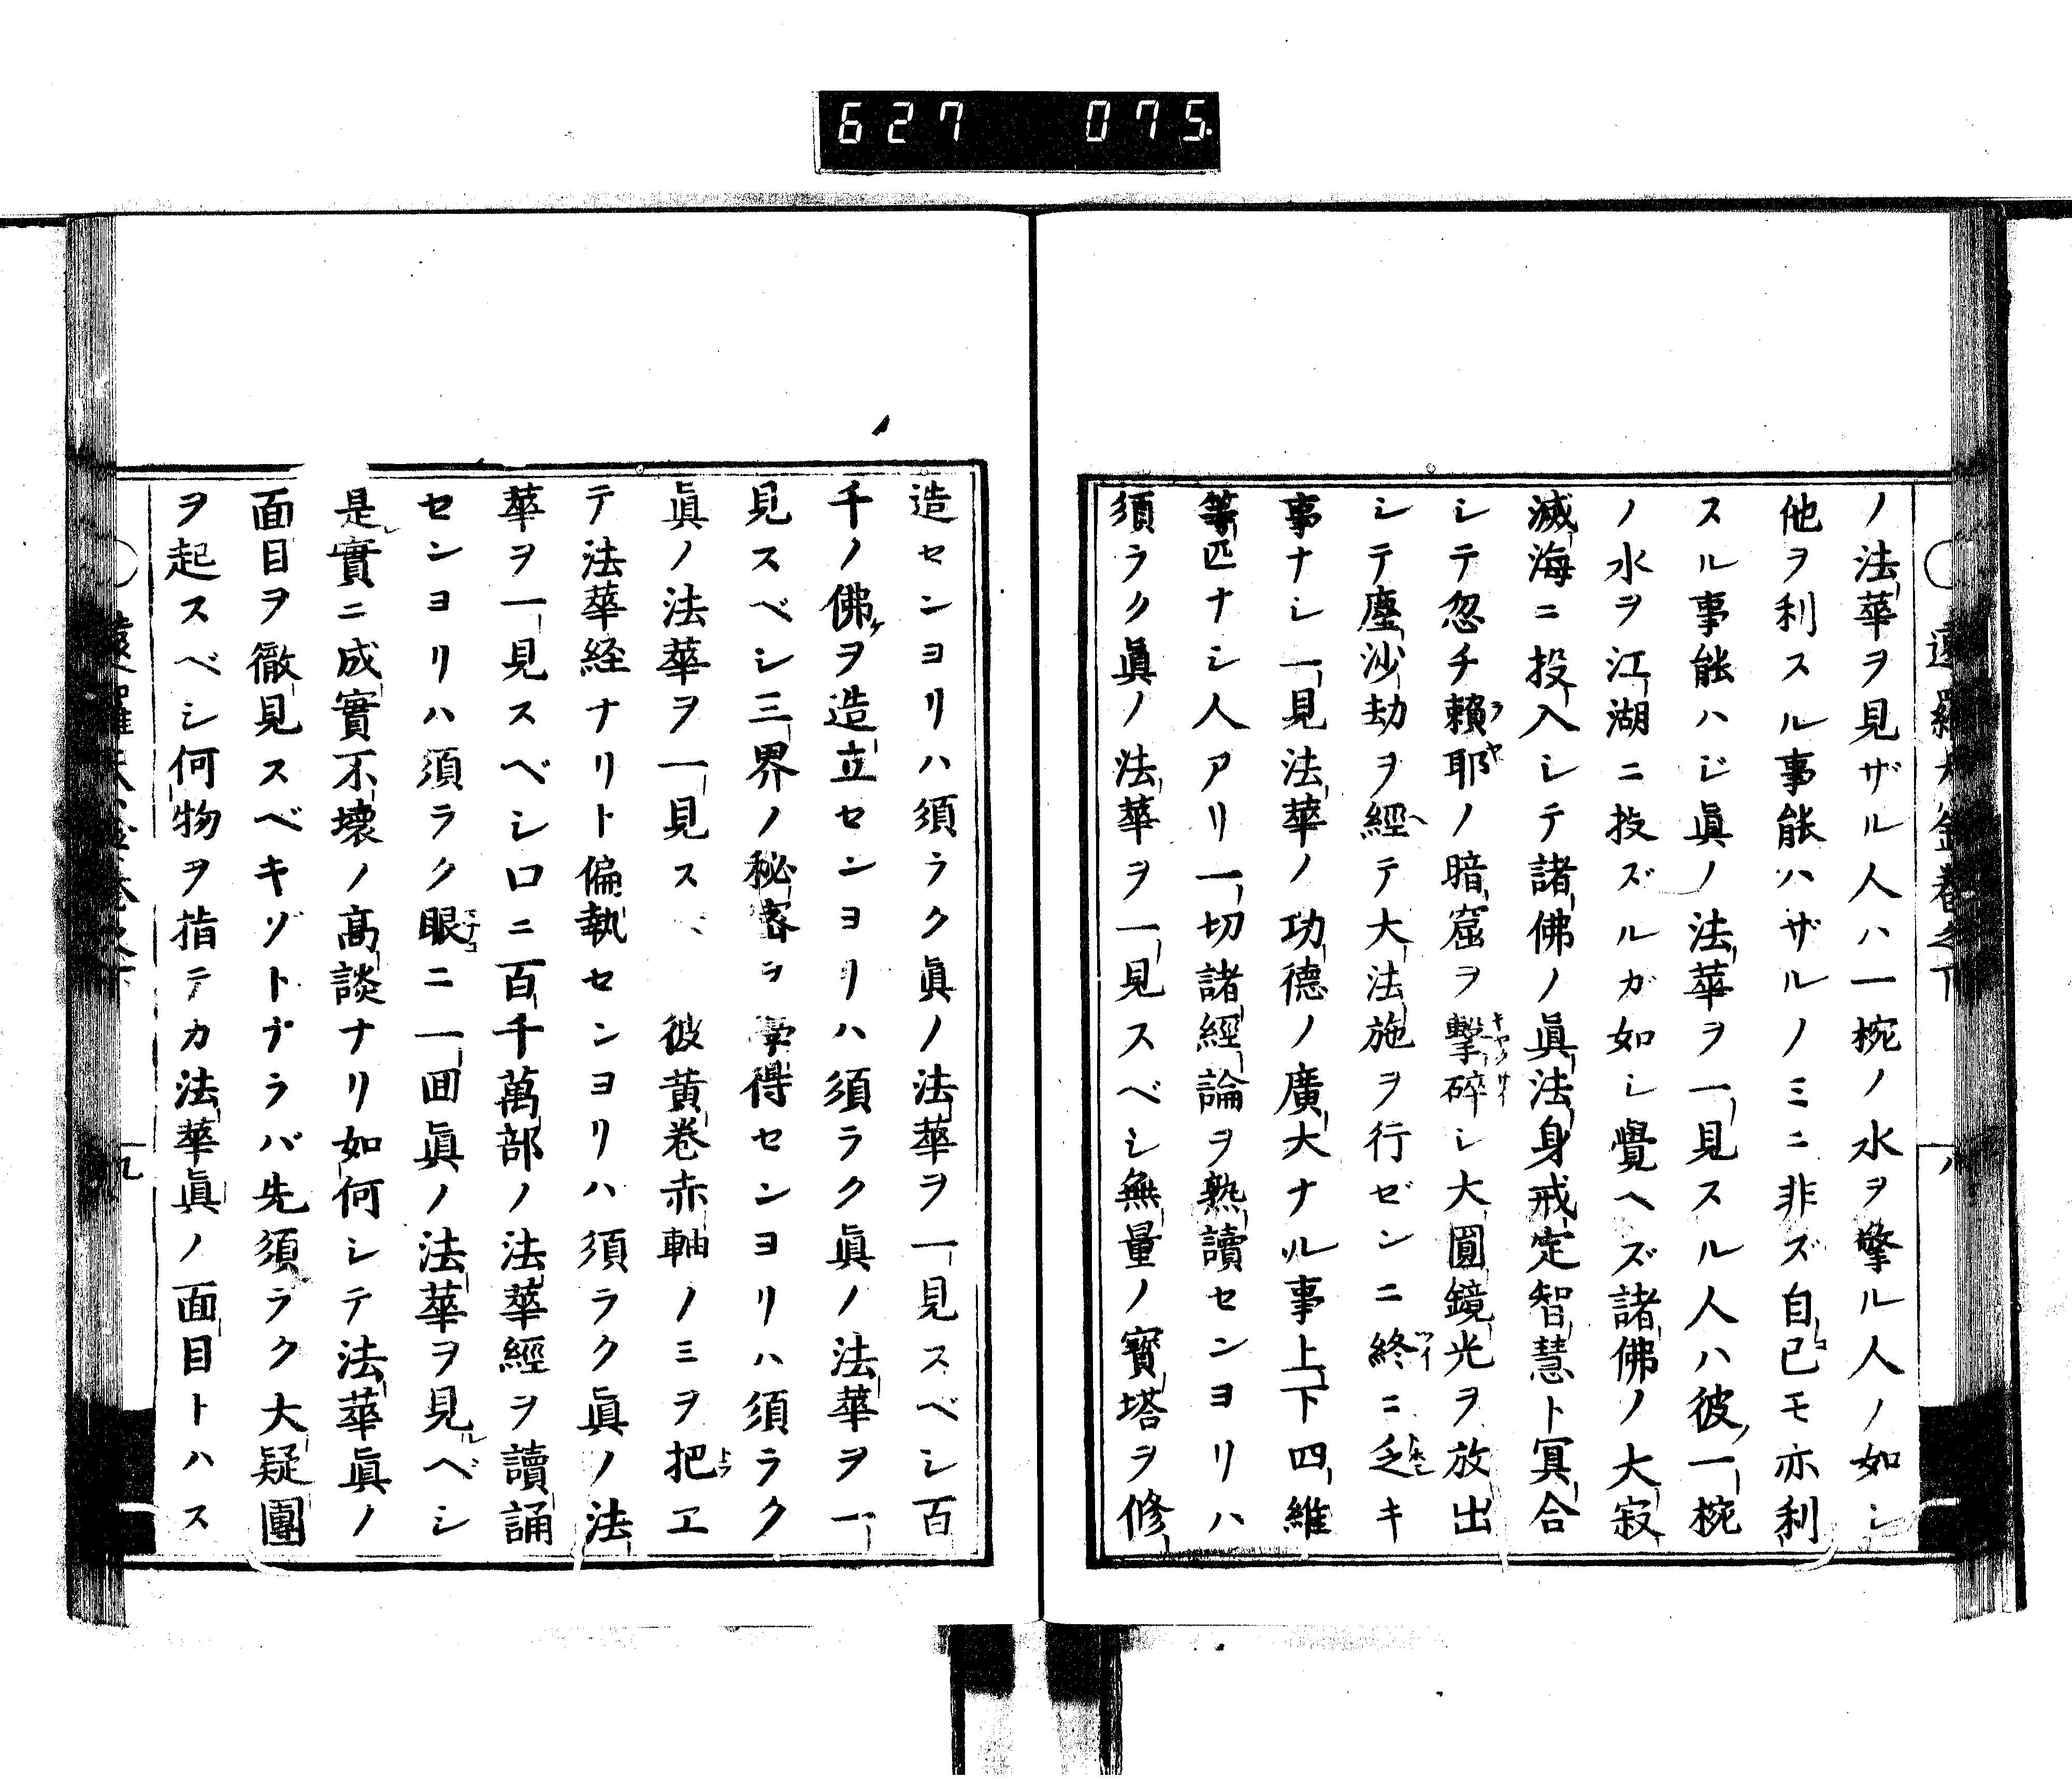 627 075
ノ法華ヲ見ザル人ハ一椀ノ水ヲ擎ル人ノ如シ
他ヲ利スル事能ハザルノミニ非ズ自己モ亦利
スル事能ハジ眞ノ法華ヲ一見スル人ハ彼一椀
ノ水ヲ江湖ニ投ズルガ如シ覺ヘズ諸佛ノ大寂
滅海ニ投入シテ諸佛ノ眞法身戒定智慧ト冥合
シテ忽チ賴耶ノ暗窟ヲ擊碎シ大圓鏡光ヲ放出
シテ塵沙劫ヲ經テ大法施ヲ行ゼンニ終ニ乏キ
事ナシ一見法華ノ功德ノ廣大ナル事上下四維
等匹ナシ人アリ一切諸經論ヲ熟讀センヨリハ
須ラク眞ノ法華ヲ一見スベシ無量ノ寳塔ヲ修
造センヨリハ須ラク眞ノ法華ヲ一見スベシ百
千ノ佛ヲ造立センヨリハ須ラク眞ノ法華ヲ一
見スベシ三界ノ秘密ヲ學得センヨリハ須ラク
眞ノ法華ヲ一見スベ彼黄巻赤軸ノミヲ把エ
テ法華経ナリト偏執センヨリハ須ラク眞ノ法
華ヲ一見スベシ口ニ百千萬部ノ法華經ヲ讀誦
センヨリハ須ラク眼ニ一囬眞ノ法華ヲ見ベシ
是實ニ成實不壊ノ髙談ナリ如何シテ法華眞ノ
面目ヲ徹見スベキゾトナラバ先須ラク大疑團
ヲ起スベシ何物ヲ指テカ法華眞ノ面目トハス